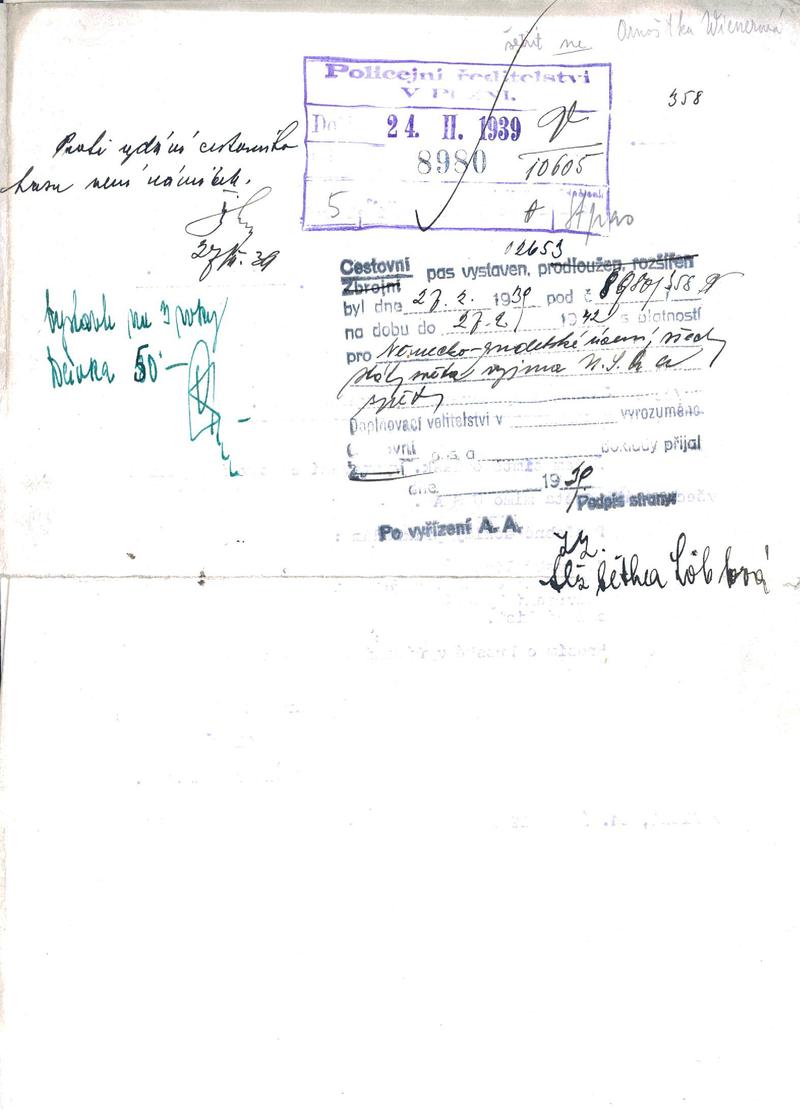 šetřit ne Arnoštka Wienerová
358
Policejní ředitelství
V PLZNI.
24. II. 1939
8980
10605
5
Proti vydání cestovního
pasu není námitek.
27/II. 39
12653
Cestovní
Zbrojní pas vystaven, prodloužen, rozšířen
byl dne 27. 2. 1939 pod č 8980/358
na dobu do 27. 2. 1942 s platností
pro Německo-sudetské území, všech
státy světa vyjma U.S.A a
zpět
Doplňovací velitelství v vyrozuměno
doklady přijal
dne 1939
Podpis strany:
Po vyřízení A. A.
Vystavit na 3 roky
Dávka 50·—
Alžbětha Löblová